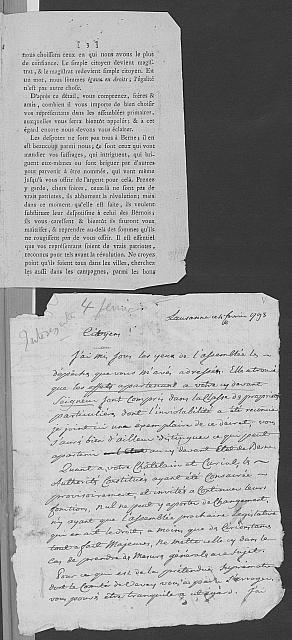 [ 3 ]
nous choisissons ceux en qui nous avons le plus
de confiance. Le simple citoyen devient magis-
trat, & le magistrat redevient simple citoyen. En
un mot, nous sommes égaux en droits; l'égalité
n'est pas autre chose.
D'après ce détail, vous comprenez, frères &
amis, combien il vous importe de bien choisir
vos représentans dans les assemblées primaires,
auxquelles vous serez bientôt appelés; & à cet
égard encore nous devons vous éclairer.
Les despotes ne sont pas tous à Berne; il en
est beaucoup parmi nous; ce sont ceux qui vont
mandier vos suffrages, qui intriguent, qui bri-
guent eux-mêmes ou font briguer par d'autres
pour parvenir à être nommés, qui vont même
jusqu'à vous offrir de l'argent pour cela. Prenez
y garde, chers frères, ceux-là ne sont pas de
vrais patriotes, ils abhorrent la révolution; mais
dans ce moment qu'elle est faite, ils veulent
substituer leur despotisme à celui des Bernois;
ils vous caressent & bientôt ils sauront vous
maîtriser, & reprendre au-delà des sommes qu'ils
ne rougissent pas de vous offrir. Il est essentiel
que vos représentans soient de vrais patriotes,
reconnus pour tels avant la révolution. Ne croyez
point qu'ils soient tous dans les villes, cherchez
les aussi dans les campagnes, parmi les bons
4 février
Lausanne ce 4 février 1798
Citoyens
J'ai mis sous les yeux de l'assemblée les
dépêches que vous m'avés adressées. Elle a
que les effets appartenant à votre cy devant
Seigneur sont compris dans la Classe de propriétés
particulières, dont l'inviolabilité a été reconnue
je joint ici une exemplaire de ce décret, vous
saurés bien d'ailleur distinguer ce qui peut
appartenir cy devant Etat de Berne
Quant à votre Châtelain et Curial, les
authorités Constituées ayant été Conservées
provisoirement, et invités à Continuer leurs
fonctions, nul ne peut y aporter de Changement,
n'y ayant que l'assemblée prochaine legislative
qui en ait le droit, a moins que des Circonstances
tout a fait Majeures, ne mettre elle cy dans le
cas de prendre des Mesures générales au sujet.
Pour ce qui est de la prétendue
dont le Comité de vous a
vous pouvés être tranquiles a cet égard. J'ai